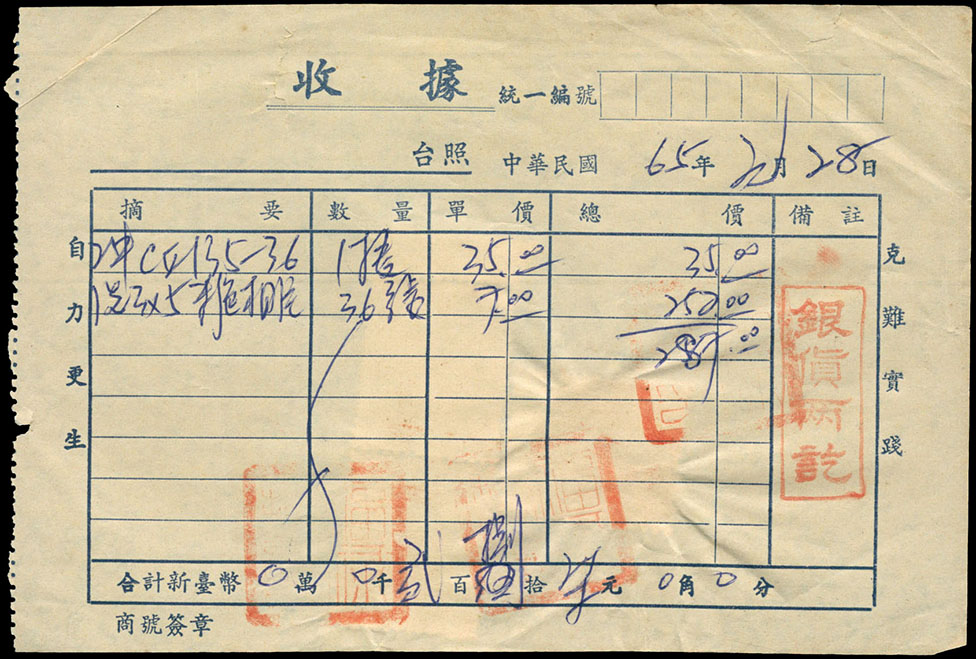 收據
統一編號
台照 中華民國 65年 月 28日
摘要 數量 單價 總價 備註
沖C4135-36 1捲 35.00 35.00
洗3x5 相 36張 7.00 252.00
287.00
合計新臺幣 0萬 0千 貳百 捌拾 柒元 0角 0分
商號簽章
自力更生
克難實踐
銀貨兩訖